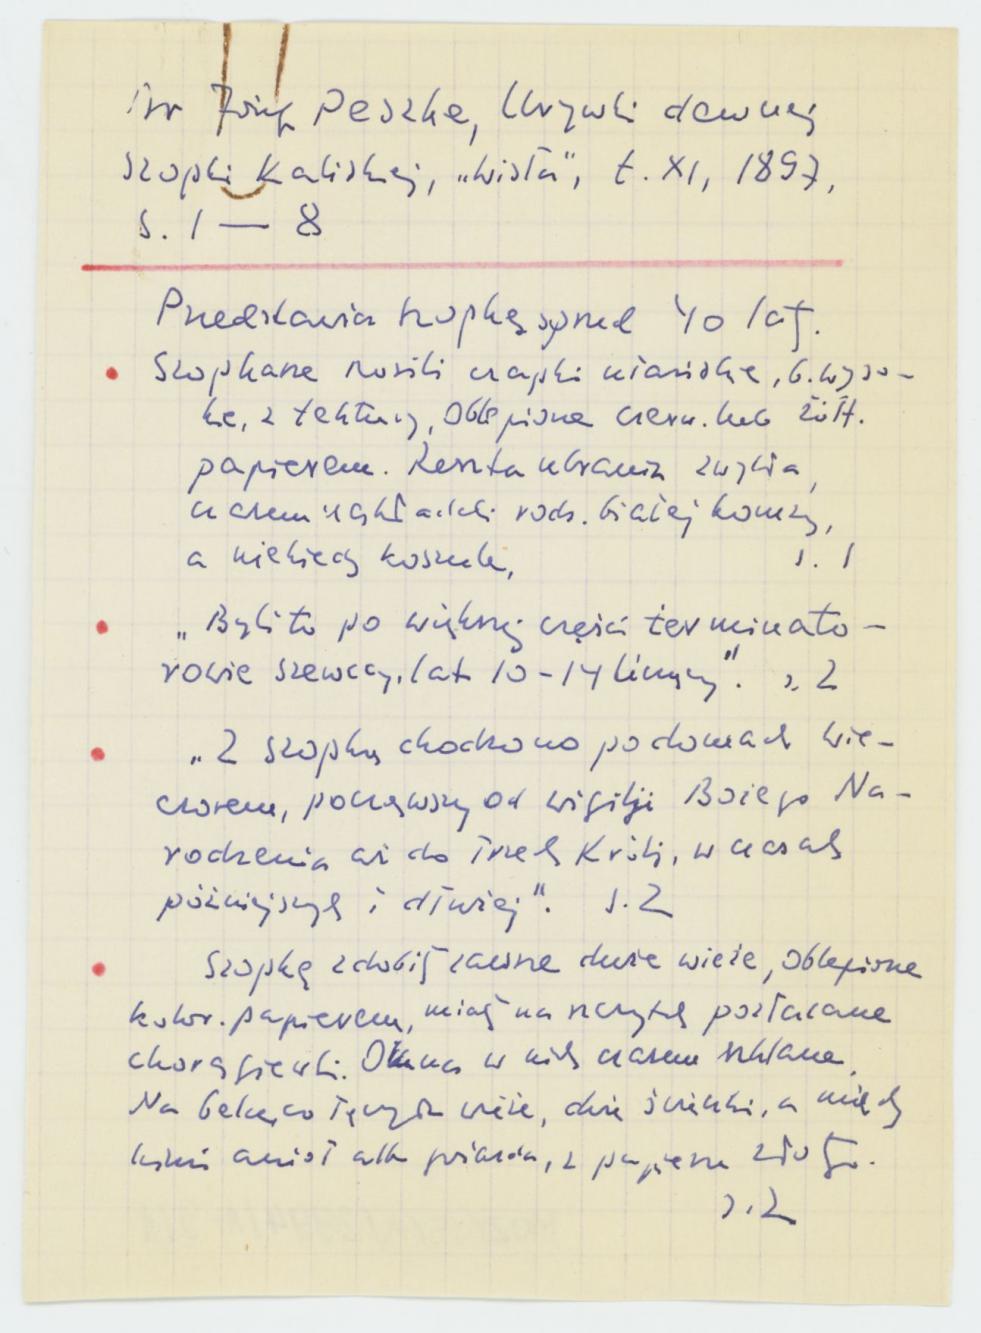 Dr Józef Peszke, Urywki dawnej
szopki Kaliskiej, „Wisła”, t. XI, 1897,
s. 1 — 8
Przedstawia szopkę sprzed 40 lat.
Szopkarze nosili czapki ułańskie, b. wyso-
kie, z tektury, oblepione czerw. lub żółt.
papierem. Reszta ubrania zwykła,
czasem wkładali rodz. białej komży,
a niekiedy koszule, s. 1
„Byli to po większej części terminato-
rowie szewccy, lat 10-14 liczący”. s. 2
„Z szopką chodzono po domach wie-
czorem, począwszy od wigilji Bożego Na-
rodzenia aż do Trzech Króli, w czasach
późniejszych i dłużej”. s. 2
Szopkę zdobiły zawsze dwie wieże, oblepione
kolor. papierem, miały na szczytach pozłacane
chorągiewki. Okna w nich czasem szklane.
Na belce, co łączyła wieże, dwie świeczki, a między
nimi anioł albo gwiazda, z papieru złotego.
s. 2